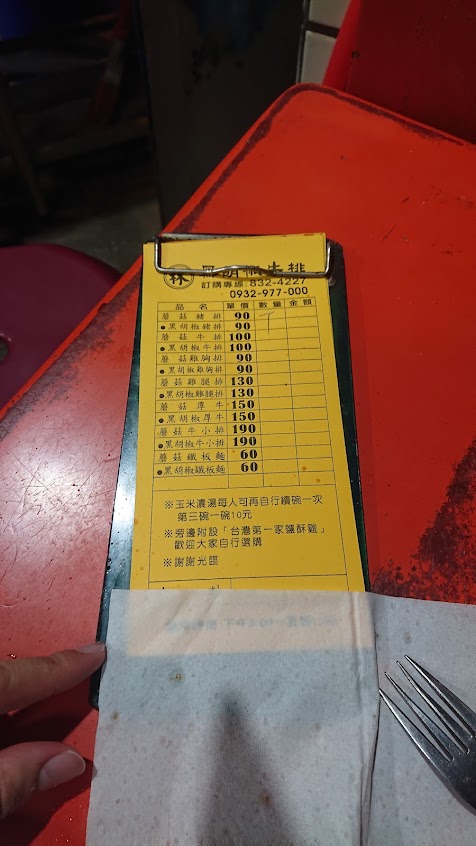 林 黑胡椒牛排
訂購專線:832-4227
0932-977-000
品名 單價 數量 金額
蘑菇豬排 90
●黑胡椒豬排 90
蘑菇牛排 100
●黑胡椒牛排 100
蘑菇雞胸排 90
●黑胡椒雞胸排 90
蘑菇雞腿排 130
●黑胡椒雞腿排 130
蘑菇厚牛 150
●黑胡椒厚牛 150
蘑菇牛小排 190
●黑胡椒牛小排 190
蘑菇鐵板麵 60
●黑胡椒鐵板麵 60
※玉米濃湯每人可再自行續碗一次
第三碗一碗10元
※旁邊附設「台灣第一家鹽酥雞」
歡迎大家自行選購
※謝謝光臨